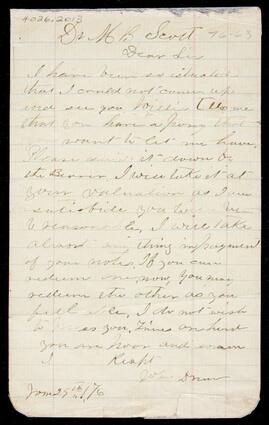 4026.2013
Dr M B Scott 76-63
Dear Sir
I have been so situated
that I could not come up
and see you Willie tells me
that you have a pony that
you want to let me have.
Please send it down by
the Bearer, I will take it at
your valuation as I am
satisfied you will
be reasonable, I will take
almost any thing in payment
of your notes. If you can
redeem one now, you may
redeem the other as you
feel like, I do not wish
to you, times are hard
you are poor and so am
I Respt
John
Jan 29th /76